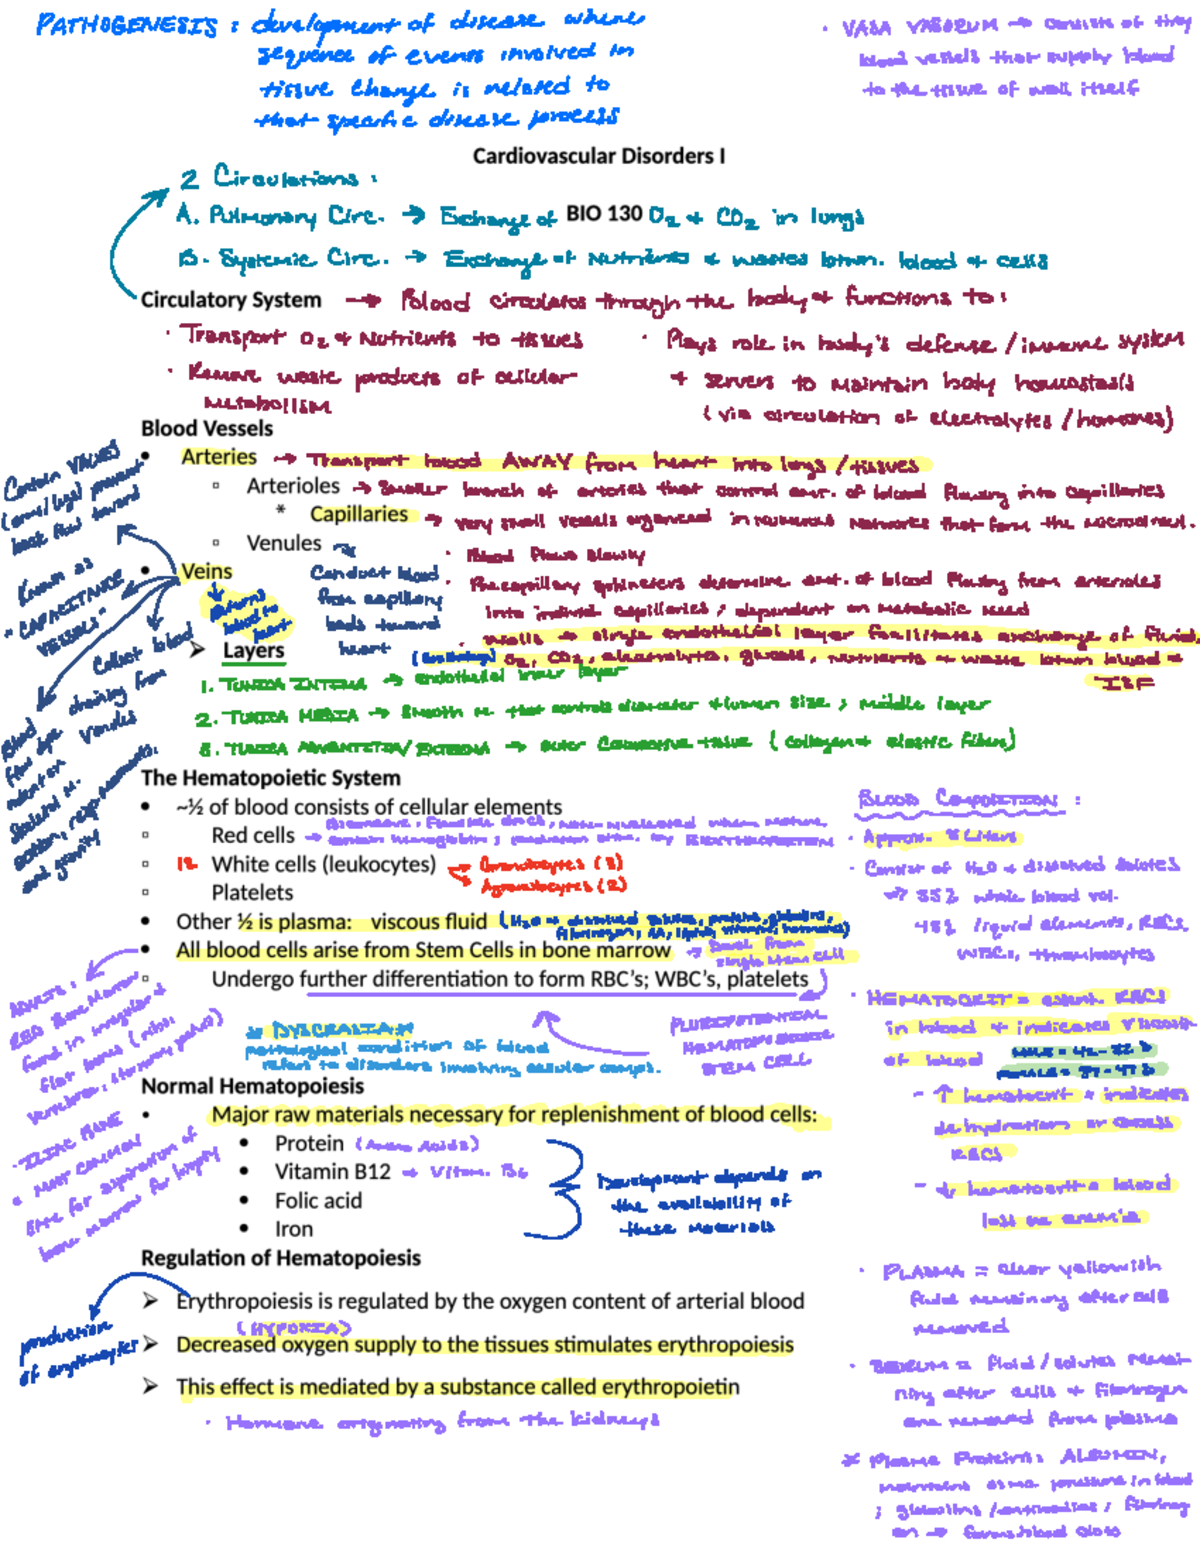 PATHOGENESIS: development of disease where
sequence of events involved in
tissue change is related to
that specific disease process
· VASA VASORUM → consists of tiny
blood vessels that supply blood
to the tissue of wall itself
Cardiovascular Disorders I
2 Circulations:
A. Pulmonary Circ. → Exchange of BIO 130 O2 + CO2 in lungs
B. Systemic Circ. → Exchange of Nutrients + wastes btwn. blood + cells
Circulatory System → Blood circulates through the body + functions to:
· Transport O2 + Nutrients to tissues
· Remove waste products of cellular
metabolism
· Plays role in body's defense/immune system
+ servers to maintain body homeostasis
(via circulation of electrolytes/hormones)
Blood Vessels
• Arteries → Transport blood AWAY from heart into lungs/tissues
▫ Arterioles → Smaller branch of arteries that control amt. of blood flowing into capillaries
* Capillaries → very small vessels organized in numerous networks that form the microcircul.
· Blood flows slowly
· Precapillary sphincters determine amt. of blood flowing from arterioles
into individ capillaries; dependent on metabolic need
· walls → single endothelial layer facilitates exchange of fluid,
O2, CO2, electrolyte, glucose, nutrients + waste btwn blood +
ISF
▫ Venules →
Conduct blood
from capillary
beds toward
heart
• Veins
Returns
blood to
heart
Contain VALVES
(arms/legs) prevent
back flow toward
Known as
"CAPACITANCE
VESSELS"
Collect blood
draining from
venules
Blood
flow
skeletal m.
and gravity
➢ Layers
1. TUNICA INTIMA → endothelial inner layer
2. TUNICA MEDIA → Smooth m. that controls diameter + lumen size; middle layer
3. TUNICA ADVENTITIA/EXTERNA → outer connective tissue (collagen + elastic fibers)
The Hematopoietic System
• ~½ of blood consists of cellular elements
▫ Red cells → Biconcave, Flexible discs, non-nucleated when mature,
contain hemoglobin;
▫ White cells (leukocytes)
Granulocytes (3)
Agranulocytes (2)
▫ Platelets
• Other ½ is plasma: viscous fluid
• All blood cells arise from Stem Cells in bone marrow → Devel. from
single stem cell
▫ Undergo further differentiation to form RBC's; WBC's, platelets
PLURIPOTENTIAL
HEMATOPOIETIC
STEM CELL
ADULTS:
RED Bone Marrow
found in irregular +
flat bones (ribs,
vertebrae, sternum, pelvis)
MOST COMMON
site for aspiration of
bone marrow for biopsy
DYSCRASIA
pathological condition of blood
refers to disorders involving cellular compt.
BLOOD COMPOSITION:
· Consist of H2O + dissolved solutes
55% whole blood vol.
45% liquid elements, RBCs,
WBCs, thrombocytes
· HEMATOCRIT =
in blood + indicates viscosity
of blood
MALE = 42-52%
FEMALE = 37-47%
- ↑ hematocrit → indicates
dehydration or excess
RBCs
- ↓ hematocrit → blood
loss or anemia
Normal Hematopoiesis
• Major raw materials necessary for replenishment of blood cells:
• Protein (Amino Acids)
• Vitamin B12 → Vitam. B6
• Folic acid
• Iron
Development depends on
the availability of
these materials
Regulation of Hematopoiesis
➢ Erythropoiesis is regulated by the oxygen content of arterial blood
(HYPOXIA)
➢ Decreased oxygen supply to the tissues stimulates erythropoiesis
➢ This effect is mediated by a substance called erythropoietin
· Hormone originating from the kidneys
production
of erythrocytes
· PLASMA = clear yellowish
fluid remaining after cells
removed
· SERUM = fluid/solutes remai-
ning after cells + fibrinogen
are removed from plasma
* Plasma Proteins: ALBUMIN,
maintains osmo. pressure in blood
; globulins/antibodies; fibrinog
en → forms blood clots